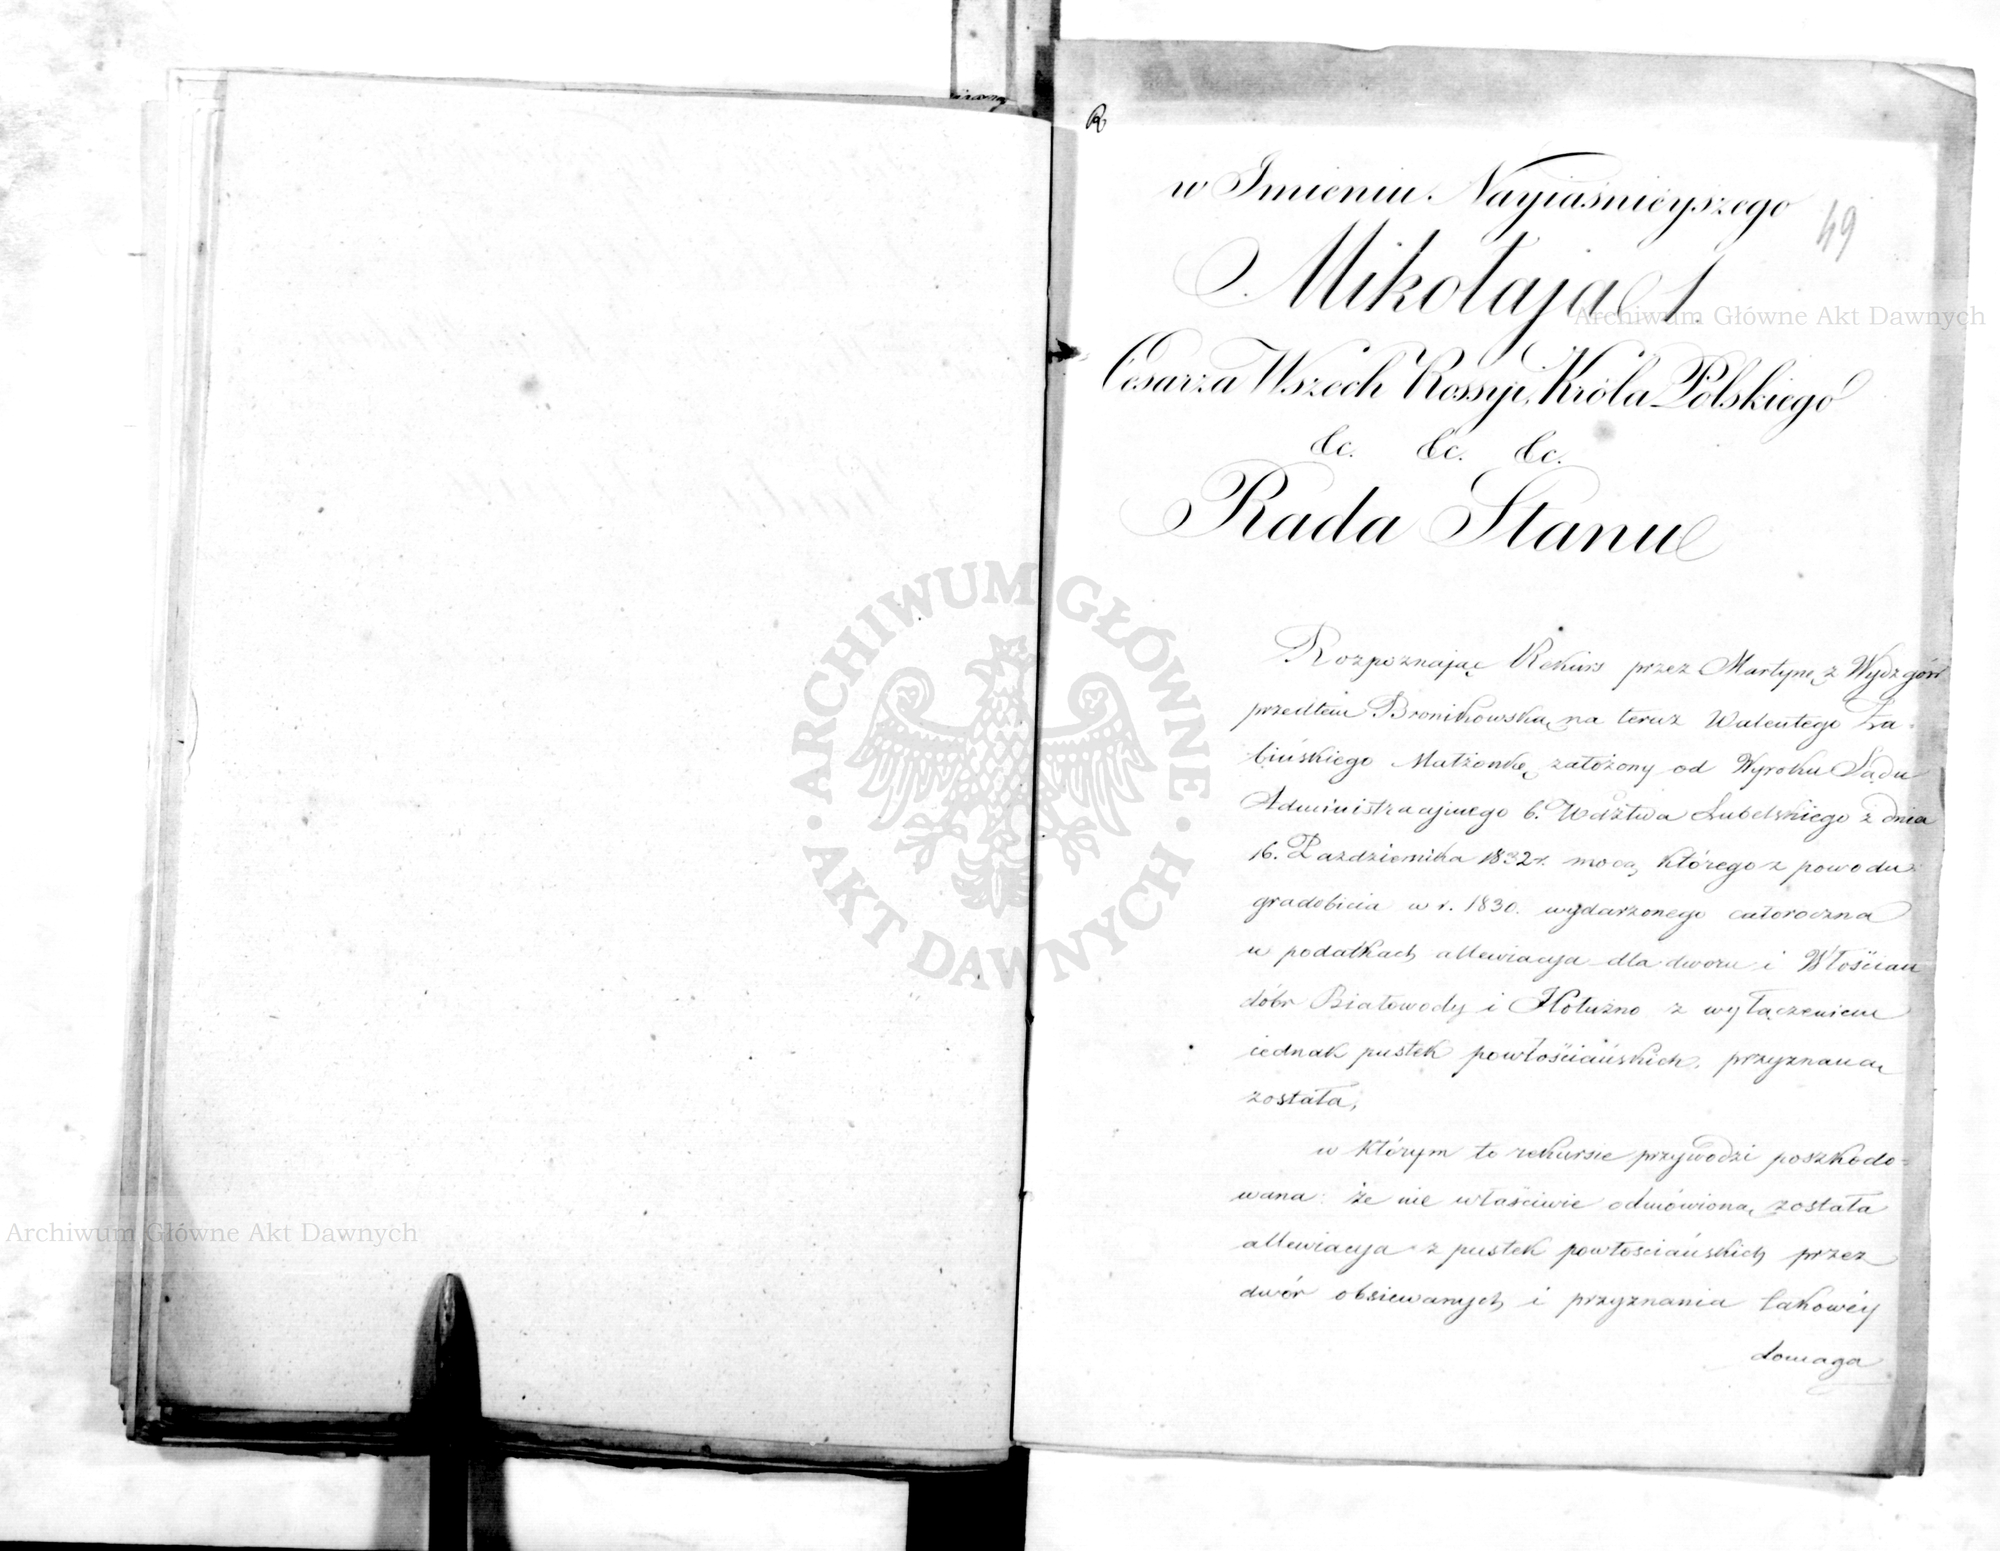 R
w Imieniu Nayiaśnieyszego
49
Mikołaja I.
Cesarza Wszech Rossyi, Króla Polskiego
&c. &c. &c.
Rada Stanu
Rozpoznając Rekurs przez Martynę z Wydzgów
przedtem Bronikowską, na teraz Walentego Ła-
bińskiego Małżonkę założony od Wyroku Sądu
Administracyjnego b. Wdztwa Lubelskiego z dnia
16. Października 1832 r. mocą którego z powodu
gradobicia w r. 1830. wydarzonego całoroczna
w podatkach allewiacya dla dworu i Włościan
dóbr Białowody i Hołużno z wyłączeniem
iednak pustek powłościańskich, przyznaną
została,
w którym to rekursie przywodzi poszkodo-
wana: że nie właściwie odmówioną została
allewiacya z pustek powłościańskich przez
dwór obsiewanych i przyznania takowéy
domaga
Archiwum Główne Akt Dawnych
Archiwum Główne Akt Dawnych
ARCHIWUM GŁÓWNE · AKT DAWNYCH ·